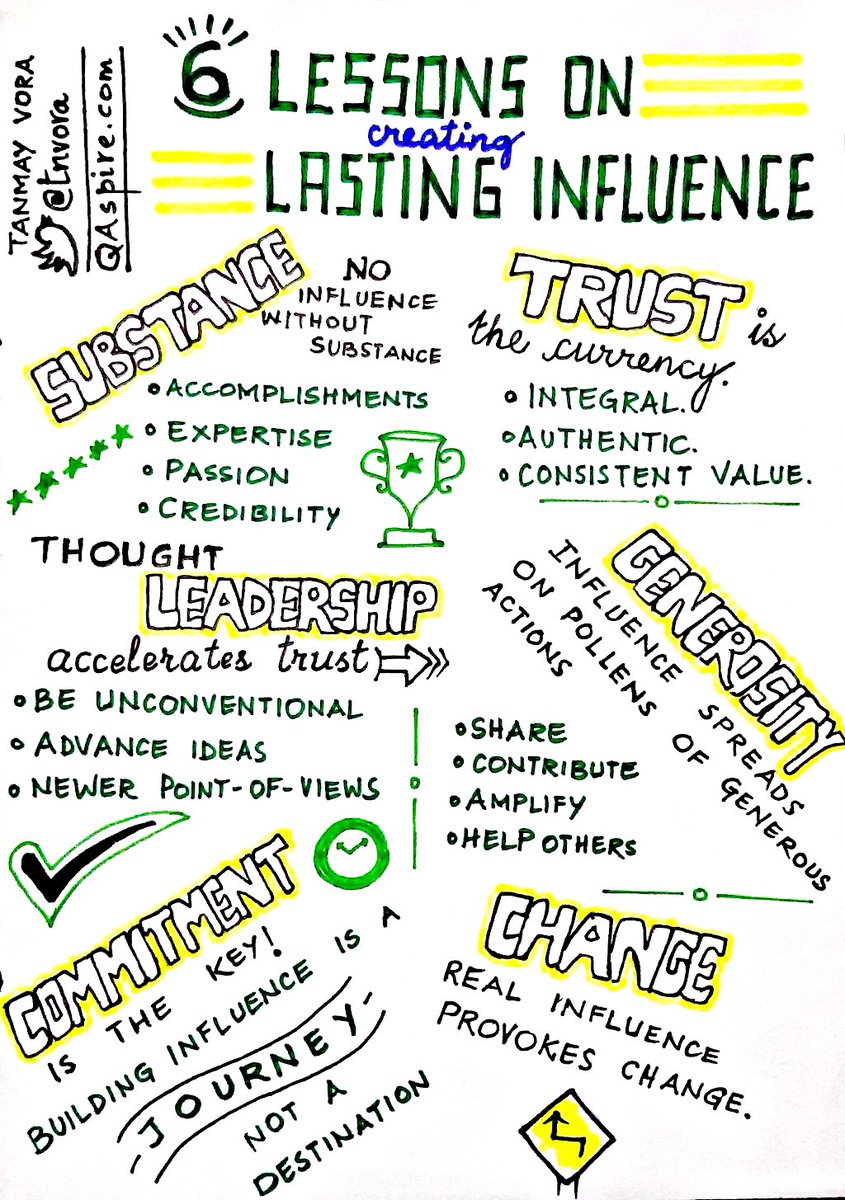 6 LESSONS ON
creating
LASTING INFLUENCE
TANMAY VORA
@tnvora
QAspire.com
SUBSTANCE
NO
INFLUENCE
WITHOUT
SUBSTANCE
• ACCOMPLISHMENTS
• EXPERTISE
• PASSION
• CREDIBILITY
TRUST is
the currency.
• INTEGRAL.
• AUTHENTIC.
• CONSISTENT VALUE.
THOUGHT
LEADERSHIP
accelerates trust
• BE UNCONVENTIONAL
• ADVANCE IDEAS
• NEWER POINT-OF-VIEWS
GENEROSITY
INFLUENCE SPREADS
ON POLLENS OF GENEROUS
ACTIONS
• SHARE
• CONTRIBUTE
• AMPLIFY
• HELP OTHERS
COMMITMENT
IS THE KEY!
BUILDING INFLUENCE IS A
-JOURNEY-
NOT A
DESTINATION
CHANGE
REAL INFLUENCE
PROVOKES CHANGE.